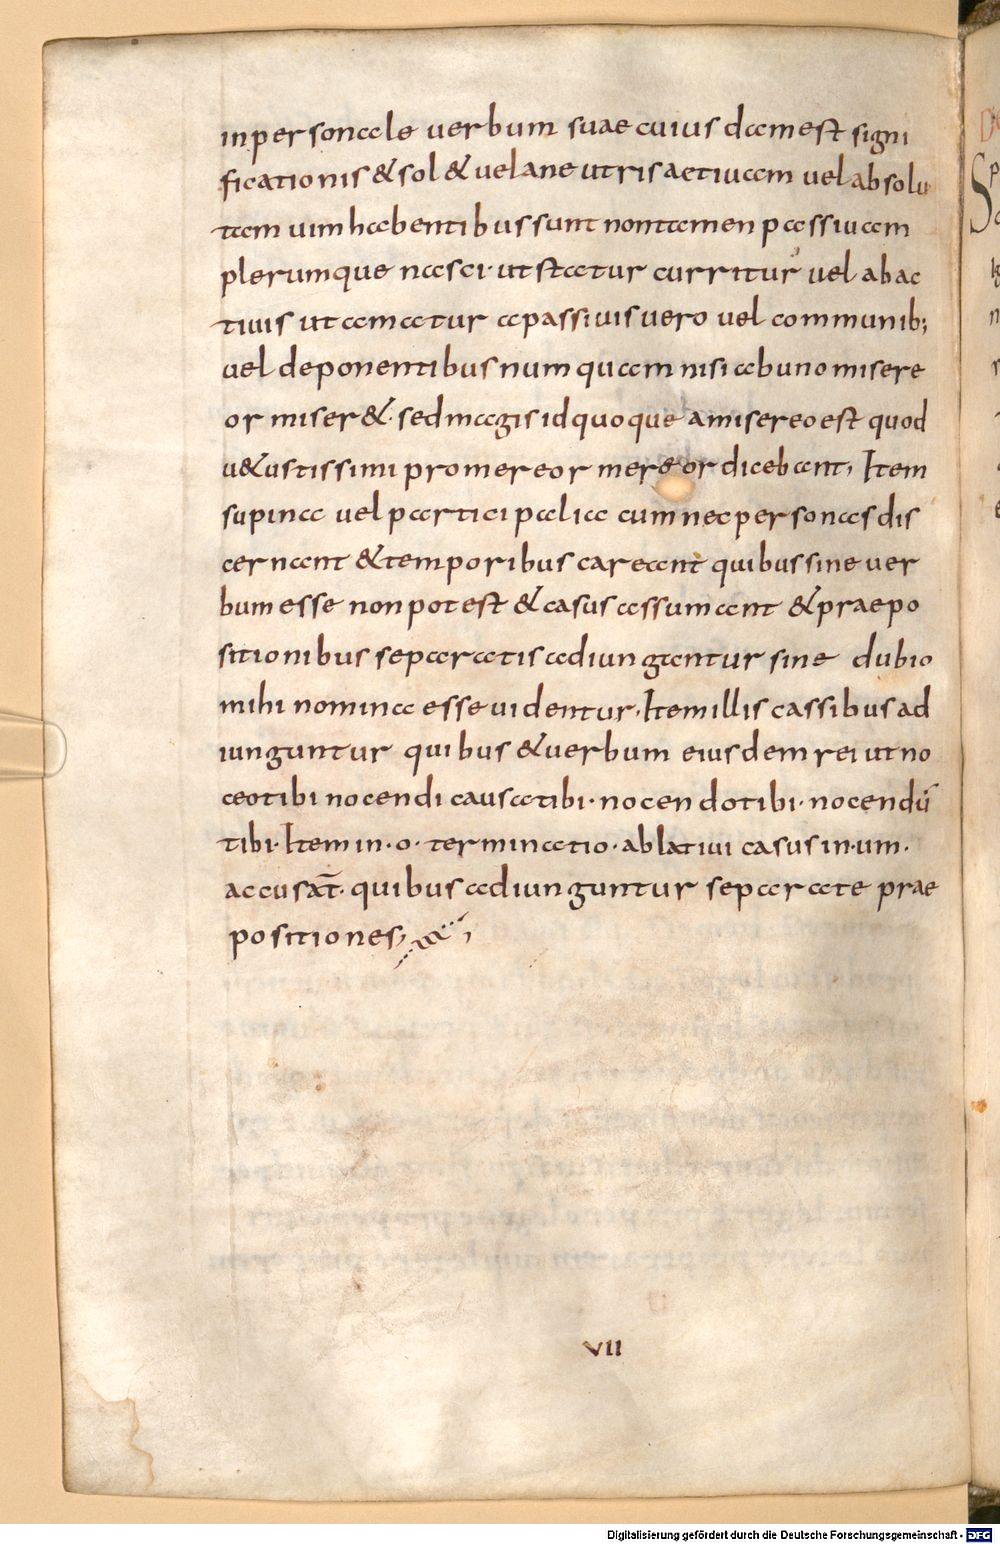 inpersonale uerbum suae cuius damest signi
ficationis & sol& uelane utrisactiuam uelabsolu
tam uimhabentibussunt nontamen passiuam
plerumque nasci· utstatur curritur uel abac
tiuis utamatur apassiuisuero uel communib;
uel deponentibusnumquam nisiabunomisere
or miser&· sedmagisidquoque amisereoest quod
u&ustissimi promereor mereor dicebant, Item
supina uel participalia cumnecpersonasdis
cernant &temporibus careant quibussine uer
bumesse nonpotest &casusassumant &praepo
sitionibus separatisadiungantur sine dubio
mihi nomina esse uidentur, Itemillis cassibusad
iunguntur quibus &uerbum eiusdem rei utno
ceotibi nocendi causatibi· nocendotibi· nocendū
tibi· Item in· o· terminatio· ablatiui casus in·um·
accusat̄· quibus adiunguntur separate prae
positiones,
VII
Digitalisierung gefördert durch die Deutsche Forschungsgemeinschaft - DFG